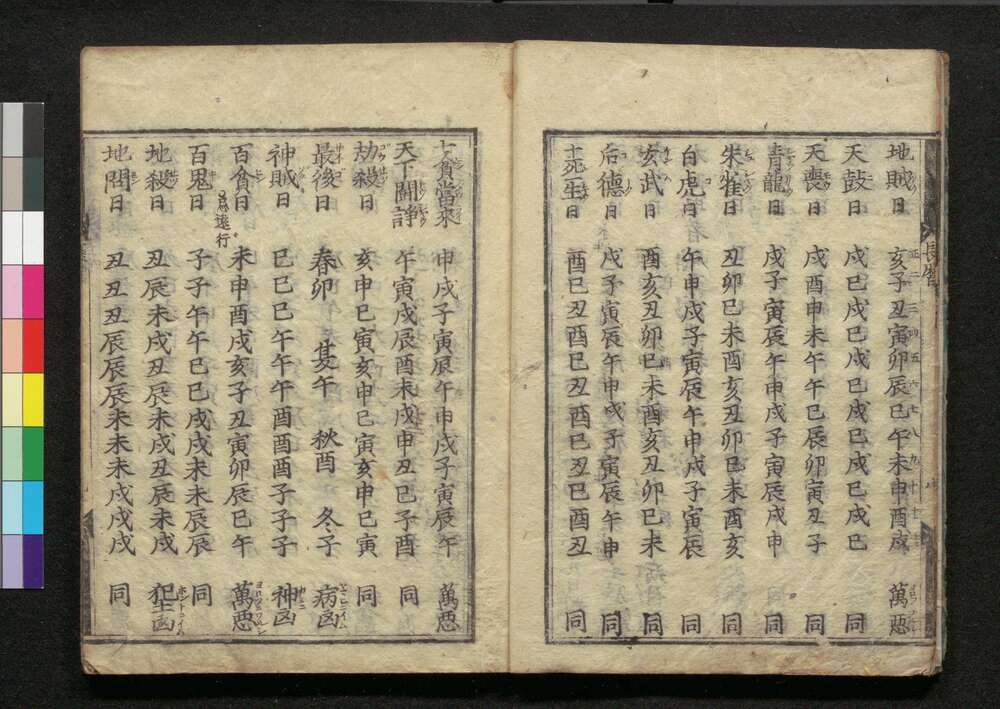 地賊日 亥子丑寅卯辰巳午未申酉戌 萬悪
天鼓日 戌巳戌巳戌巳戌巳戌巳戌巳 同
天喪日 戌酉申未午午巳辰卯寅丑子 同
青龍日 戌子寅辰午申戌子寅辰戌申 同
朱雀日 丑卯巳未酉亥丑卯巳未酉亥 同
白虎日 午申戌子寅辰午申戌子寅辰 同
亥武日 酉亥丑卯巳未酉亥丑卯巳未 同
后德日 戌子寅辰午申戌子寅辰午申 同
十死生日 酉巳丑酉巳丑酉巳丑巳酉丑 同
七貧當來 申戌子寅辰午申戌子寅辰午 萬悪
天下鬪諍 午寅戌辰酉未戌申丑巳子酉 同
劫殺日 亥申巳寅亥申巳寅亥申巳寅 同
最後日 春卯 夏午 秋酉 冬子 病凶
神賊日 巳巳巳午午午酉酉酉子子子 神凶
百貪日 忌遠行 未申酉戌亥子丑寅卯辰巳午 萬悪
百鬼日 子子午午巳巳戌戌未未辰辰 同
地殺日 丑辰未戌丑辰未戌丑辰未戌 犯土凶
地問日 丑丑丑辰辰辰未未未戌戌戌 同